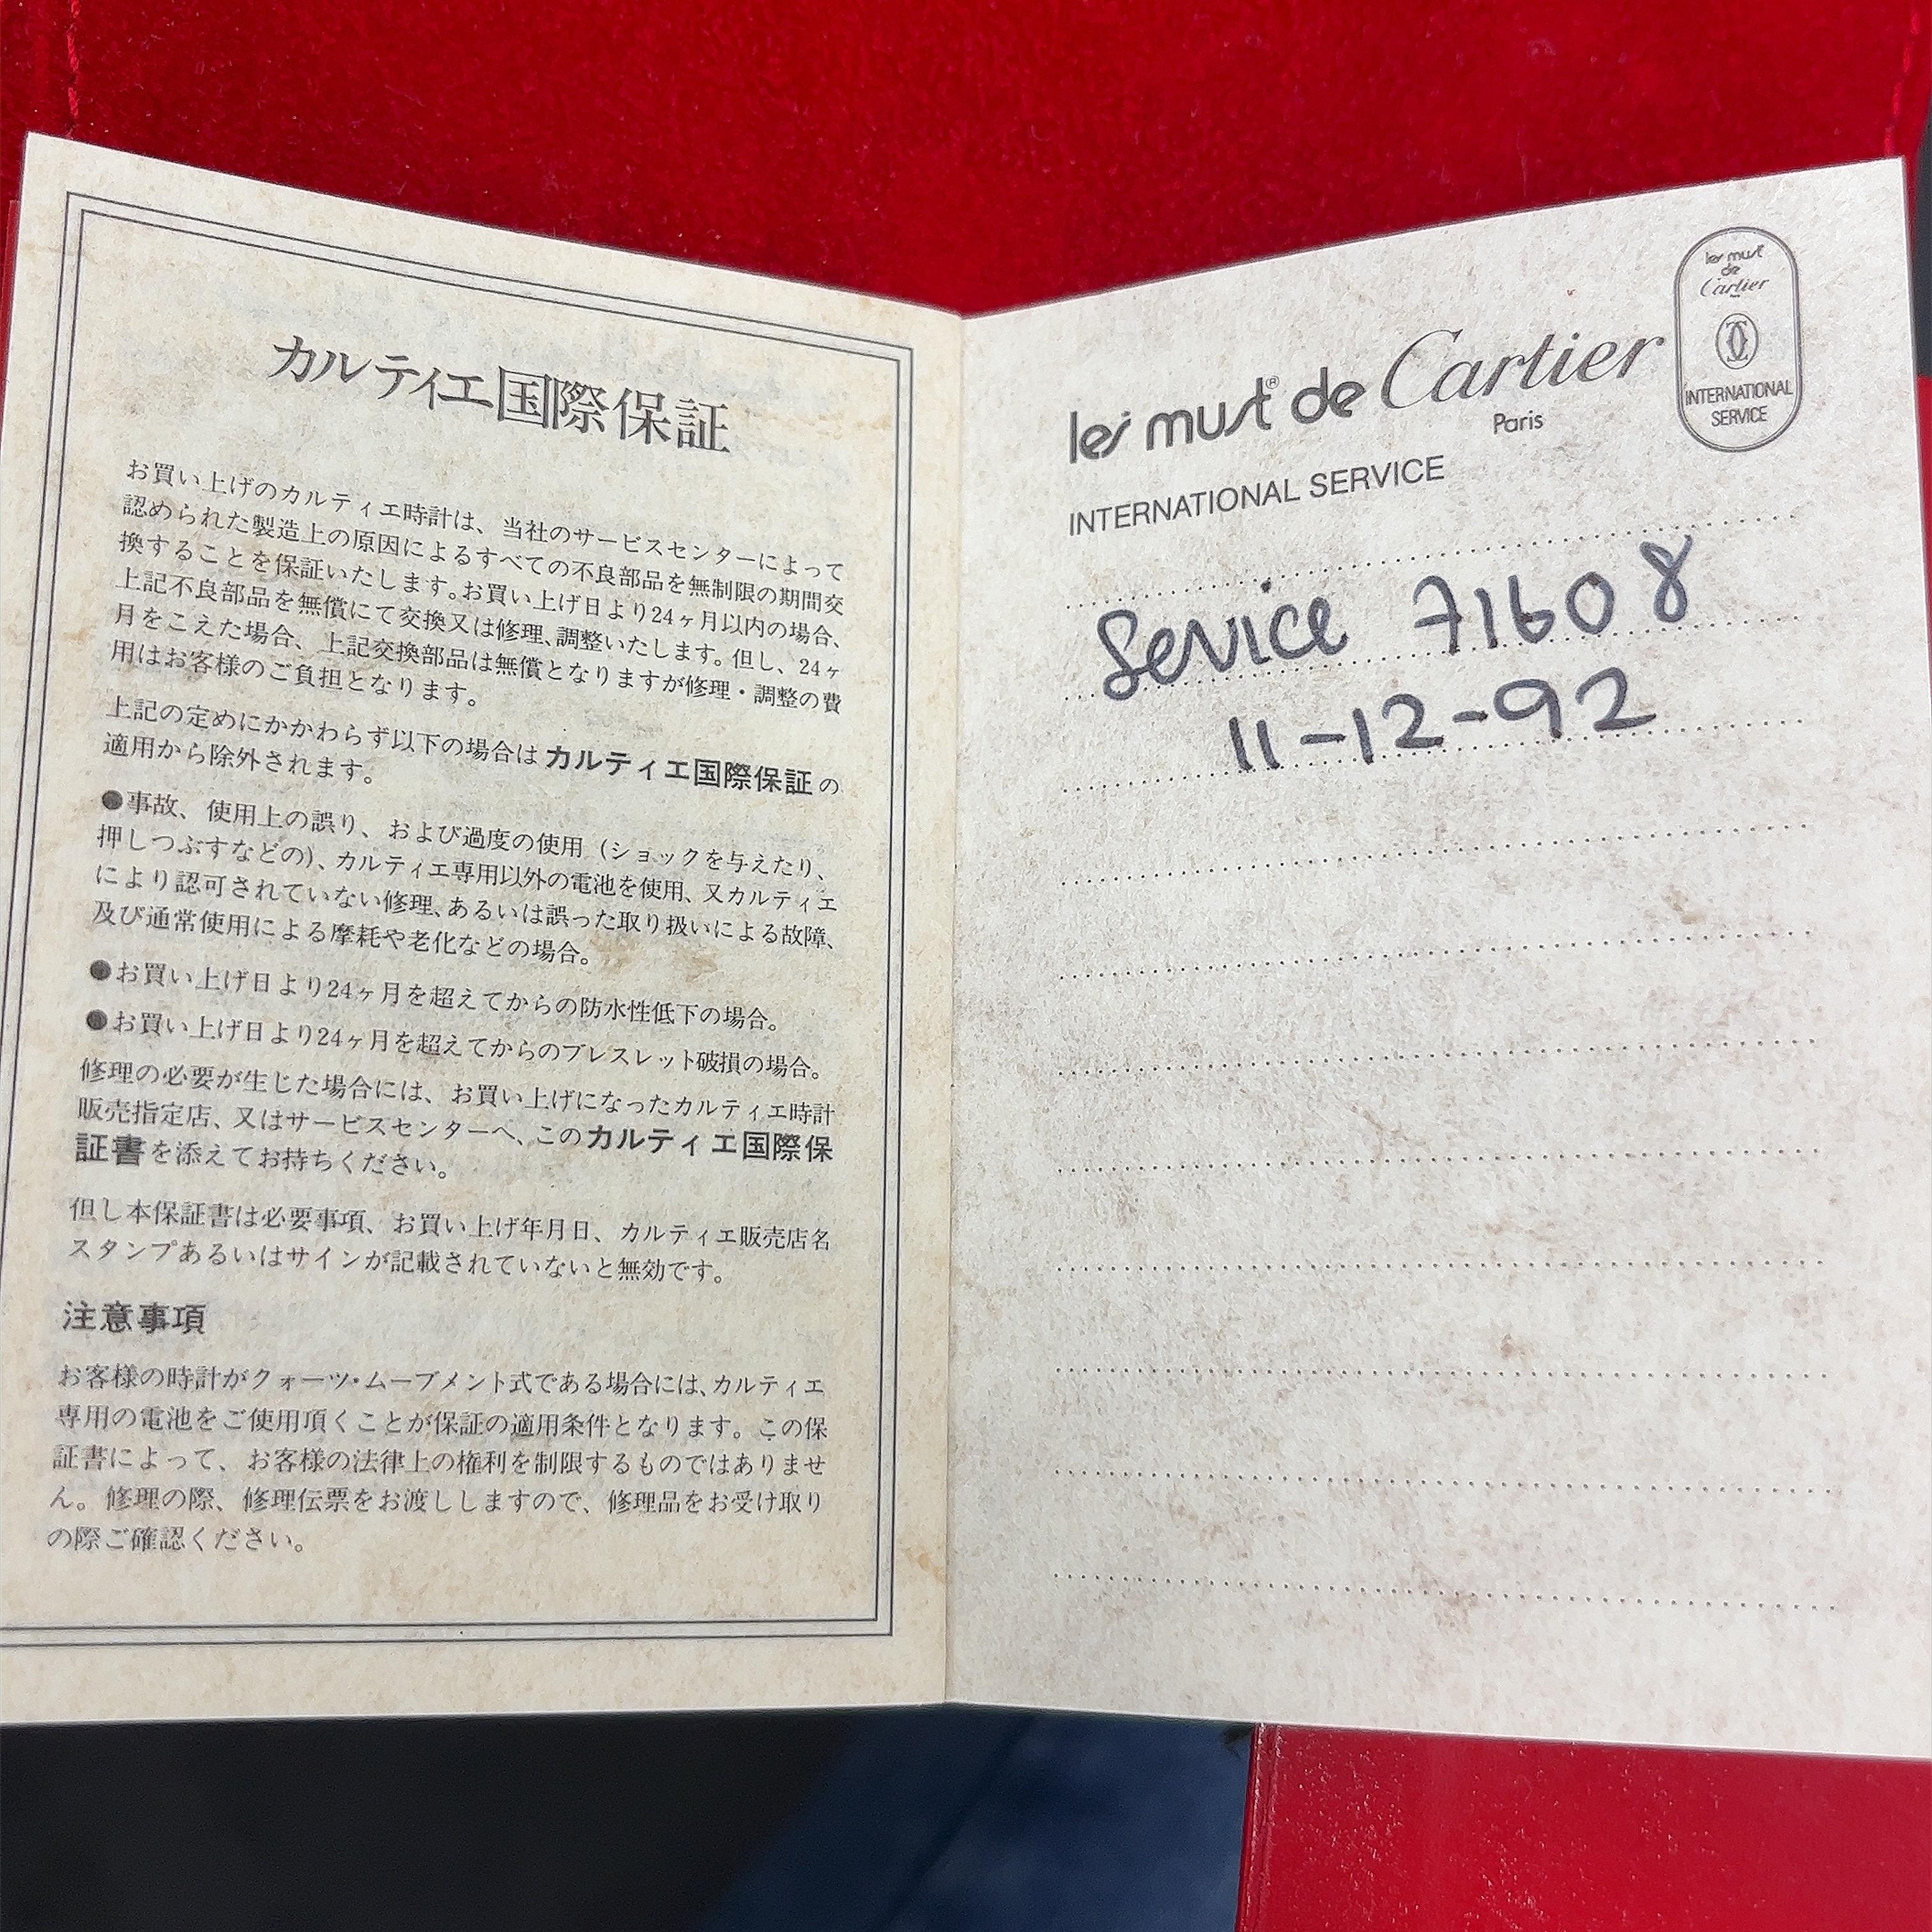 カルティエ国際保証
お買い上げのカルティエ時計は、当社のサービスセンターによって
認められた製造上の原因によるすべての不良部品を無制限の期間交
換することを保証いたします。お買い上げ日より24ヶ月以内の場合、
上記不良部品を無償にて交換又は修理、調整いたします。但し、24ヶ
月をこえた場合、上記交換部品は無償となりますが修理・調整の費
用はお客様のご負担となります。
上記の定めにかかわらず以下の場合はカルティエ国際保証の
適用から除外されます。
●事故、使用上の誤り、および過度の使用（ショックを与えたり、
押しつぶすなどの）、カルティエ専用以外の電池を使用、又カルティエ
により認可されていない修理、あるいは誤った取り扱いによる故障、
及び通常使用による摩耗や老化などの場合。
●お買い上げ日より24ヶ月を超えてからの防水性低下の場合。
●お買い上げ日より24ヶ月を超えてからのブレスレット破損の場合。
修理の必要が生じた場合には、お買い上げになったカルティエ時計
販売指定店、又はサービスセンターへ、このカルティエ国際保
証書を添えてお持ちください。
但し本保証書は必要事項、お買い上げ年月日、カルティエ販売店名
スタンプあるいはサインが記載されていないと無効です。
注意事項
お客様の時計がクォーツ・ムーブメント式である場合には、カルティエ
専用の電池をご使用頂くことが保証の適用条件となります。この保
証書によって、お客様の法律上の権利を制限するものではありませ
ん。修理の際、修理伝票をお渡ししますので、修理品をお受け取り
の際ご確認ください。
les must® de Cartier
Paris
INTERNATIONAL SERVICE
les must
de
Cartier
Paris
INTERNATIONAL
SERVICE
Service 71608
11-12-92